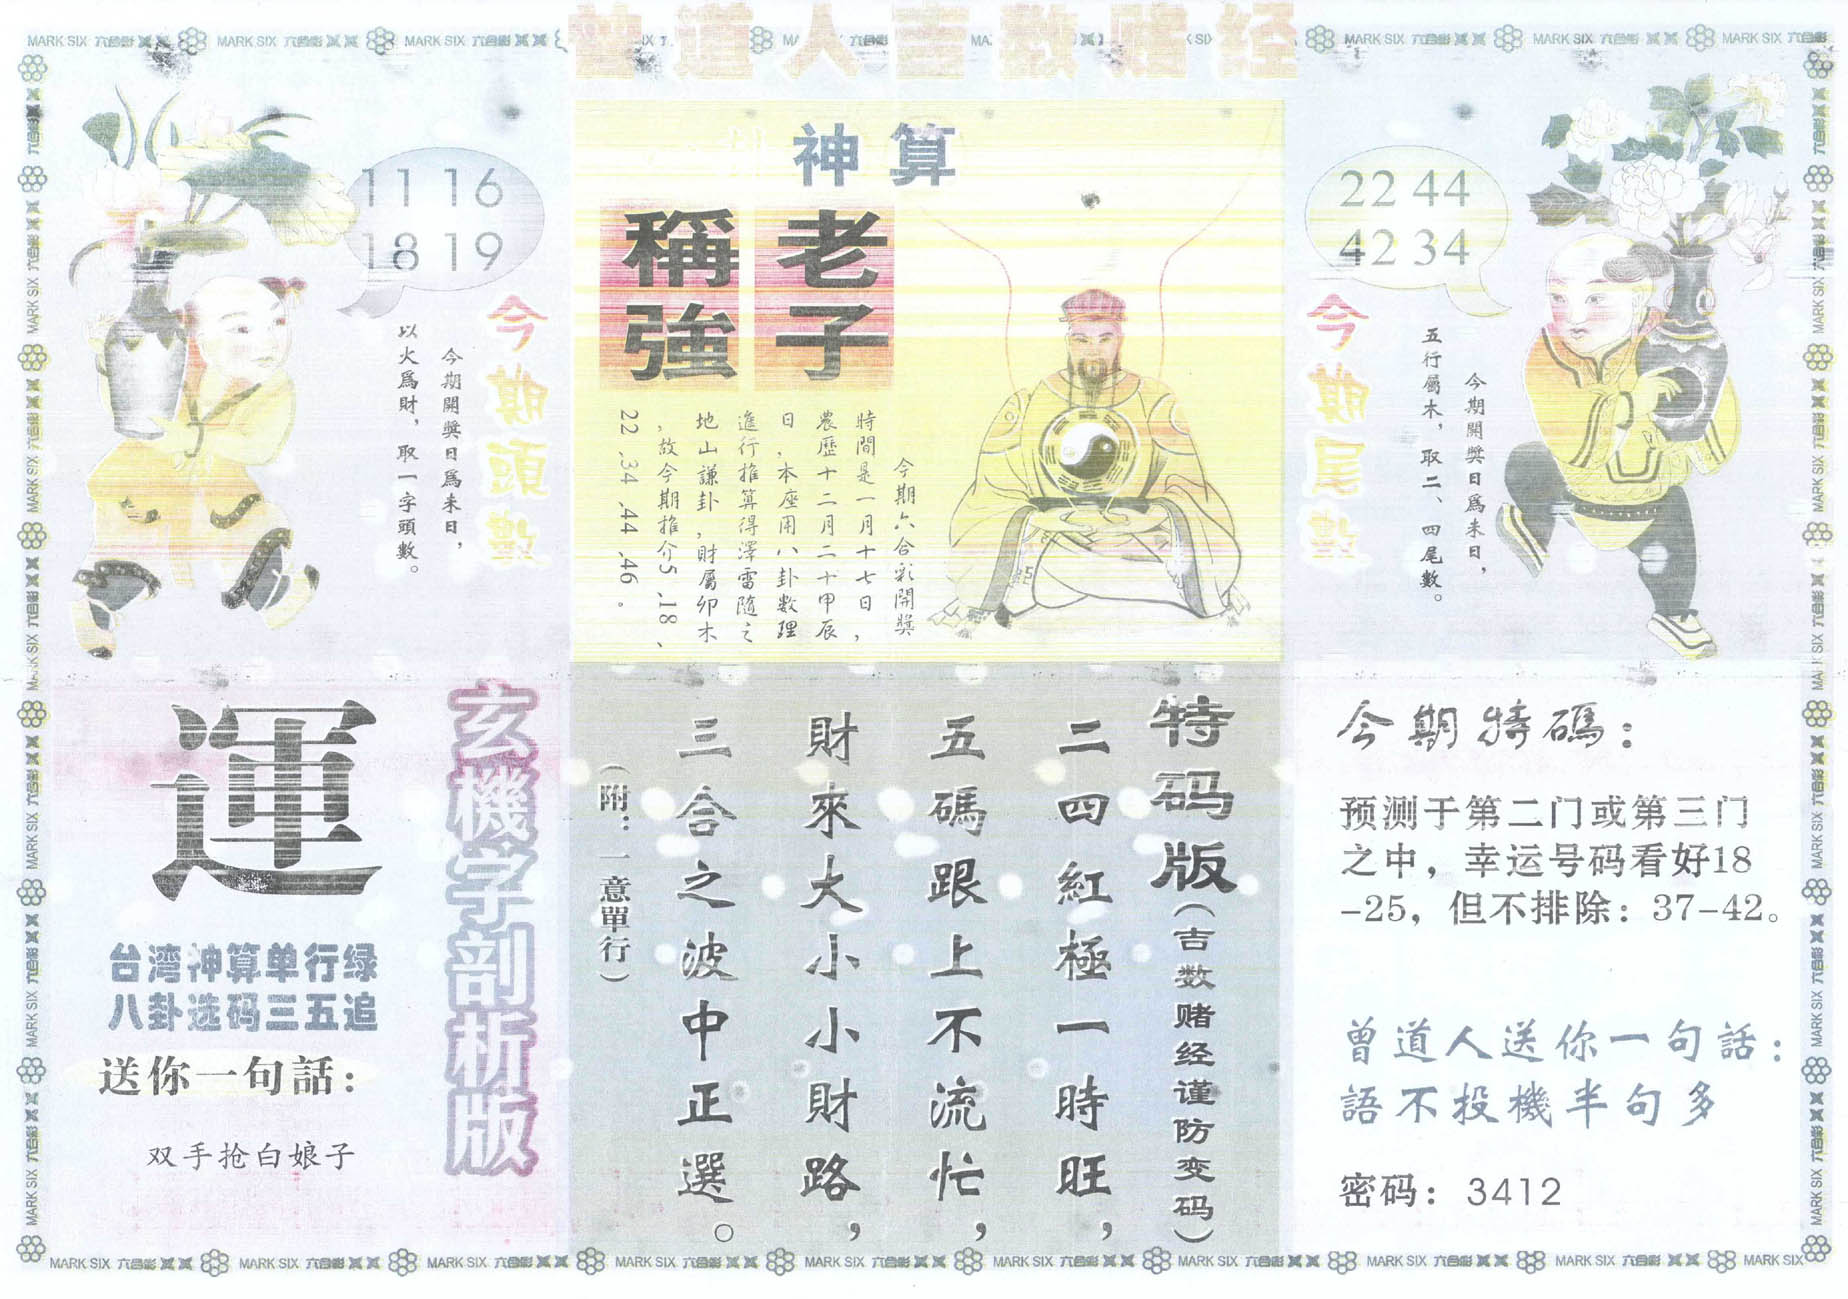 曾道人吉数赌经
11 16
18 19
今期頭數
今期開獎日爲未日，
以火爲財，取一字頭數。
神算
老子
稱強
今期六合彩開獎
時間是一月十七日，
農歷十二月二十甲辰
日，本座用八卦数理
進行推算得澤雷隨之
地山謙卦，財屬卯木
，故今期推介5、18、
22、34、44、46。
22 44
42 34
今期尾數
今期開獎日爲未日，
五行屬木，取二、四尾數。
玄機字剖析版
運
台湾神算单行绿
八卦选码三五追
送你一句話：
双手抢白娘子
特码版(吉数赌经谨防变码)
二四紅極一時旺，
五碼跟上不流忙，
財來大小小財路，
三合之波中正選。
(附：一意單行)
今期特碼：
预测于第二门或第三门
之中，幸运号码看好18
-25，但不排除：37-42。
曾道人送你一句話：
語不投機半句多
密码：3412
MARK SIX 六合彩